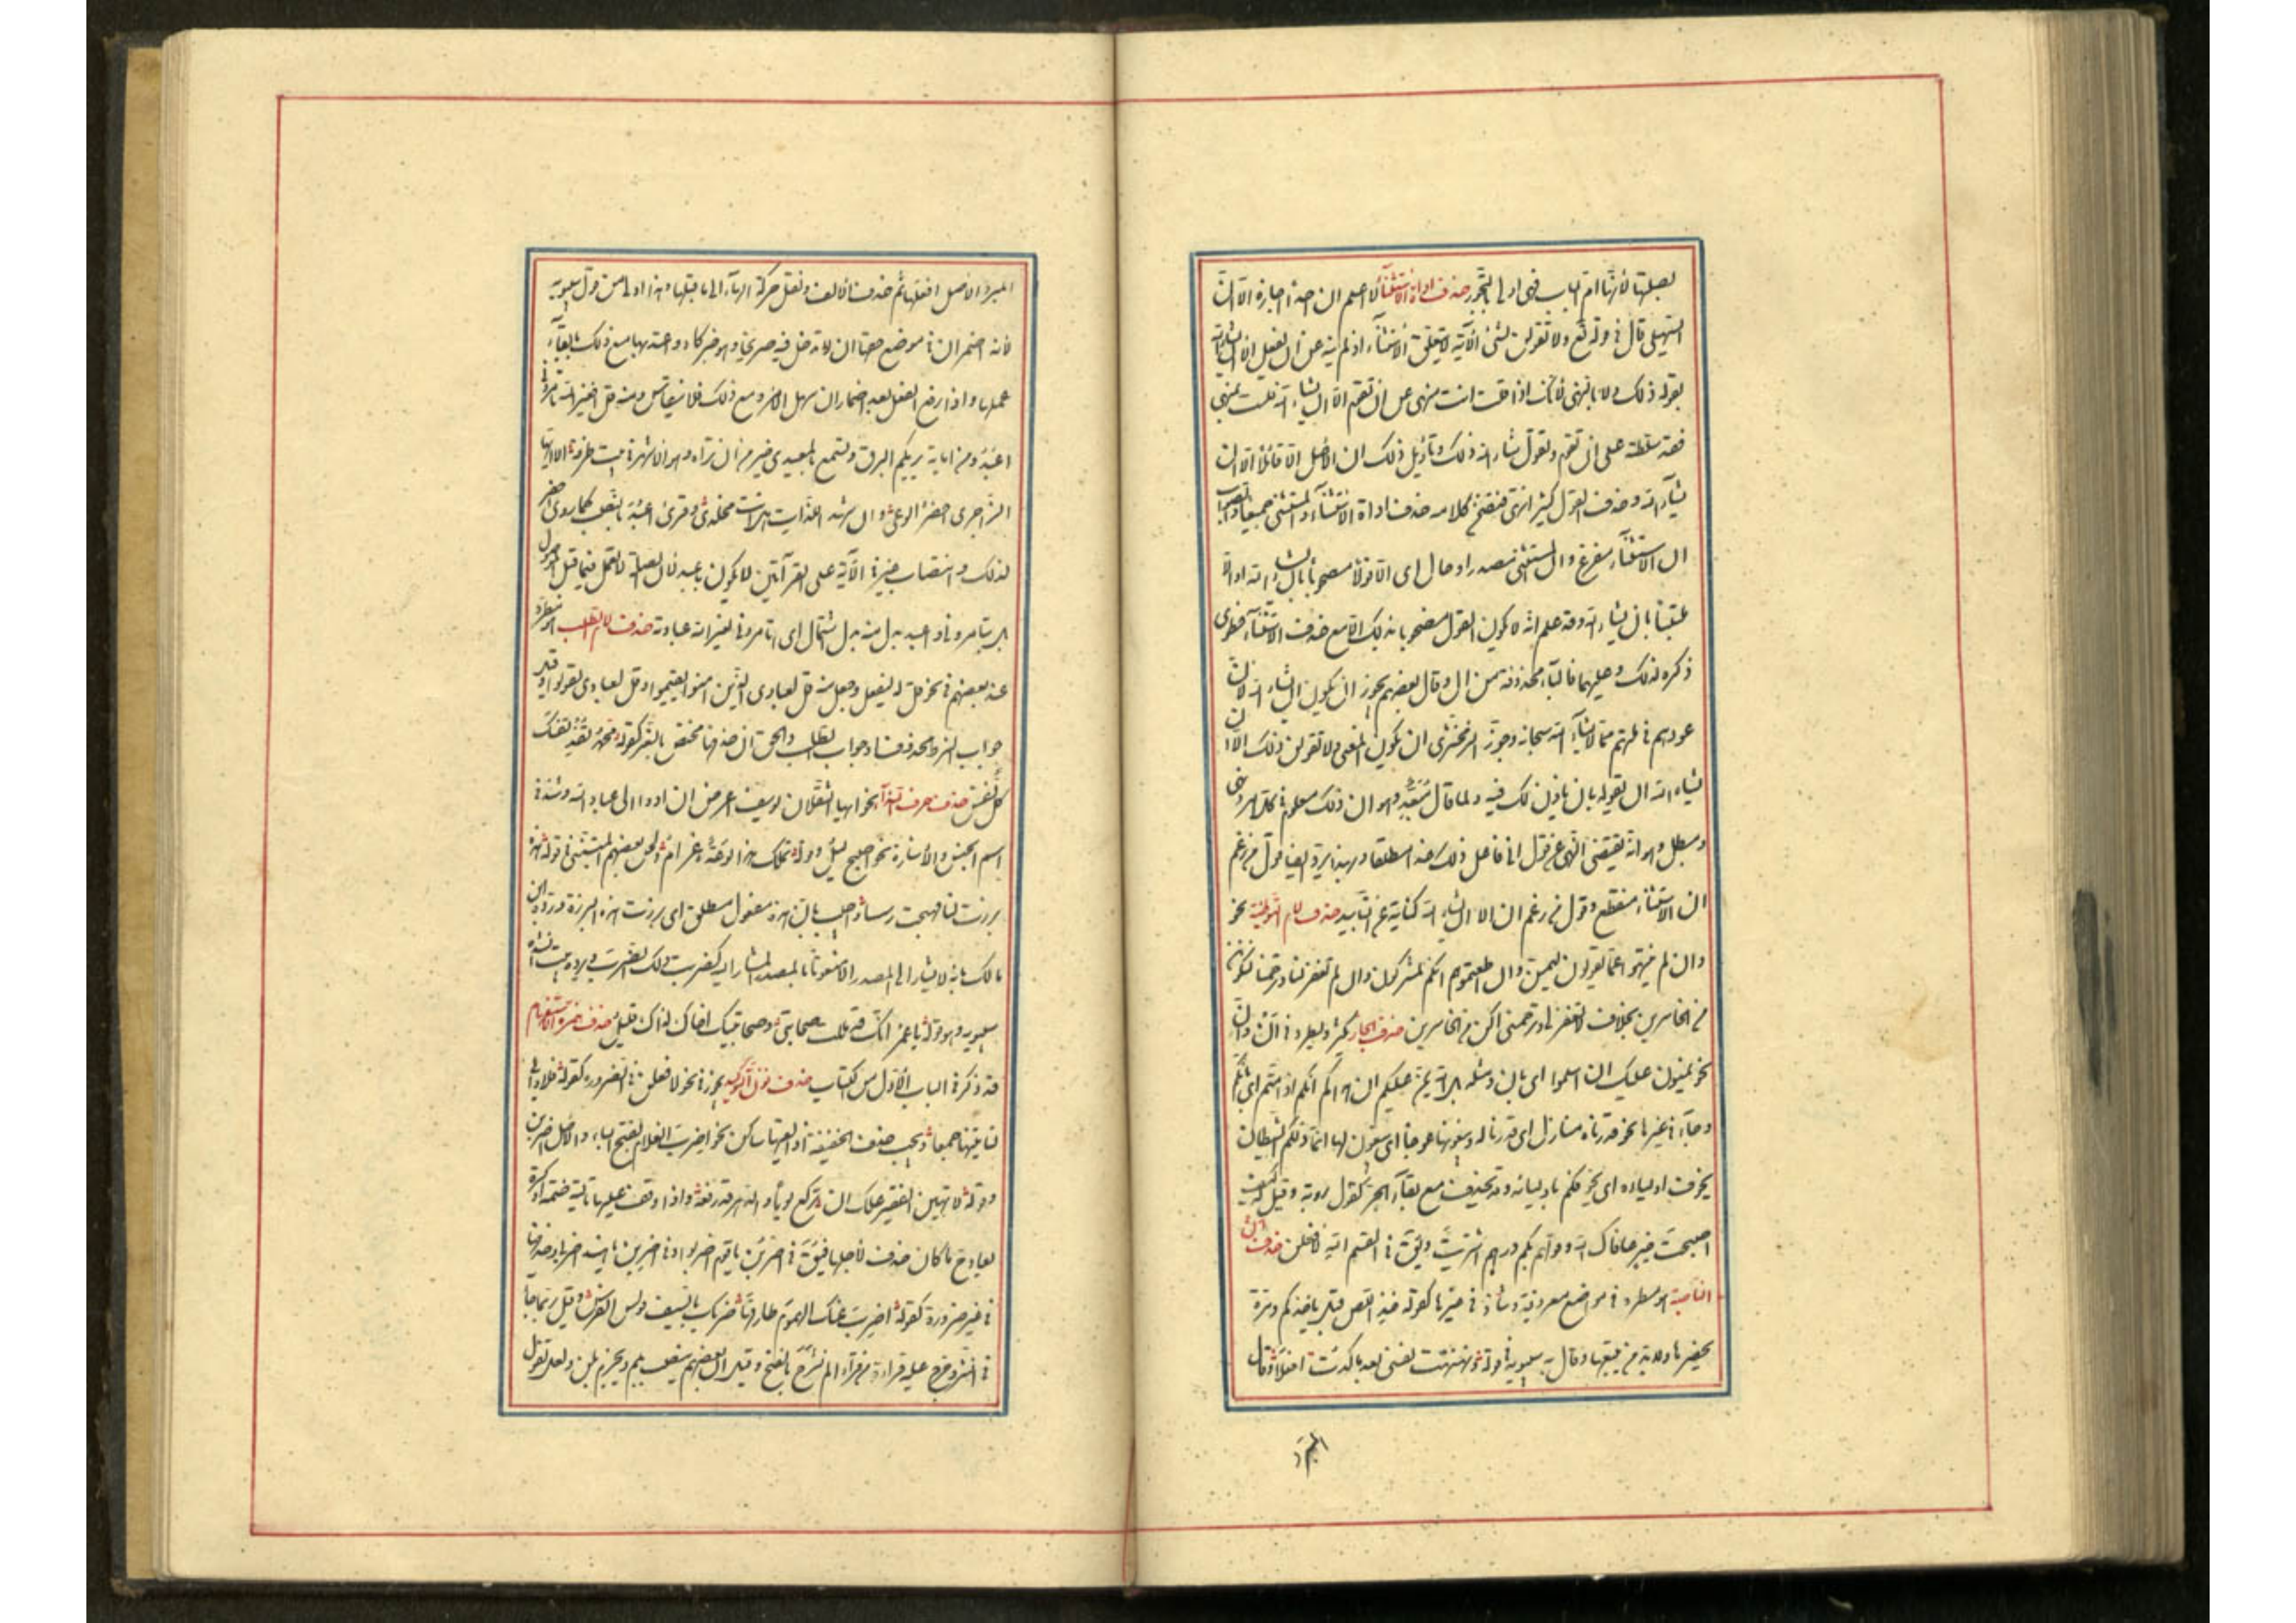 بصلتها لأنها ام الباب فهى اولى بالتجوز حذف اداة الاستثناء لا اعلم ان احدا اجازه الا ان
السهيلى قال فى قوله تع ولا تقولن لشئ الآية لا يتعلق الاستثناء بفاعل اذ لم ينه عن ان يفعل الا ان يشاء الله
بقوله ذلك ولا بالنهى لأنك اذا قلت انت منهى عن ان تقوم الا ان يشاء الله فلست بمنهى
فقد سلطته على ان تقوم ويقول شاء الله ذلك وتأويل ذلك ان الاصل الا قائلا الا ان
يشاء الله وحذف القول كثير انتهى فتضمن كلامه حذف اداة الاستثناء والمستثنى جميعا والصواب
ان الاستثناء مفرغ وان المستثنى مصدر او حال اى الا قولا مصحوبا بان يشاء الله او الا
متلبسا بان يشاء الله وقد علم انه لا يكون القول مصحوبا بذلك الا مع حرف الاستثناء فطوى
ذكره لذلك وعليهما فالباء محذوفة من ان وقال بعضهم يجوز ان يكون ان يشاء الله
عودهم فى ملتهم مما لا يشاء الله سبحانه وجوز الزمخشرى ان يكون المعنى ولا تقولن ذلك الا ان
يشاء الله ان تقوله بان يأذن لك فيه ولما قاله مبعد وهو ان ذلك معلوم فى كل امر ونهى
ومبطل وهو انه يقتضى النهى عن قول انى فاعل ذلك غدا مطلقا وبهذا يرد ايضا قول من زعم
ان الاستثناء منقطع وقول من زعم ان الا ان يشاء الله كناية عن التأبيد حذف لام التوطئة نحو
وان لم ينتهوا عما يقولون ليمسن وان اطعتموهم انكم لمشركون وان لم تغفر لنا وترحمنا لنكونن
من الخاسرين بخلاف والا تغفر لى وترحمنى اكن من الخاسرين حذف الجار يكثر ويطرد فى ان وان
نحو يمنون عليك ان اسلموا اى بان ومثله بل الله يمن عليكم ان هداكم انكم اذا متم اى بانكم
وجاء فى غيرها نحو قدرناه منازل اى قدرنا له ويبغونها عوجا اى يبغون لها انما ذلكم الشيطان
يخوف اولياءه اى يخوفكم باوليائه وقد يحذف مع بقاء الجر كقول رؤبة وقيل له كيف
اصبحت خير عافاك الله وقولهم بكم درهم اشتريت ويق فى القسم الله لافعلن حذف ان
الناصبة هو مطرد فى مواضع معروفة وشاذ فى غيرها كقوله خذ اللص قبل يأخذك ومره
يحفرها ولابد من يتبعها وقال به سيبويه فى قوله ونهنهت نفسى بعد ما كدت افعله وقال
المبرد
المبرد الاصل افعلها ثم حذفت الالف ونقل حركة الهاء الى ما قبلها وهذا اولى من قول سيبويه
لأنه اضمر ان فى موضع حقها ان لا تدخل فيه صريحا وهو خبر كاد واعتد بها مع ذلك بابقاء
عملها واذا رفع الفعل بعد اضمار ان سهل الامر ومع ذلك فلا ينقاس ومنه قل افغير الله تأمرونى
اعبد ومن اياته يريكم البرق وتسمع بالمعيدى خير من ان تراه وهو الاشهر فى بيت طرفة الا ايها
الزاجرى احضر الوغى وان اشهد اللذات هل انت مخلدى وقرئ اعبد بالنصب كما روى احضر
لذلك وانتصاب غير فى الآية على القرائتين لا يكون باعبد لأن الصلة لا تعمل فيما قبل الموصول
بل بتأمرونى وان اعبد بدل منه بدل اشتمال اى تأمرونى بغير الله عبادته حذف لام الطلب هو مطرد
عند بعضهم فى نحو قل له ليفعل وجعل منه قل لعبادى الذين امنوا يقيموا وقل لعبادى يقولوا وقيل
جواب لشرط محذوف او جواب للطلب والحق ان حذفها مختص بالشعر كقوله محمد تفد نفسك
كل نفس حذف حرف النداء نحو ايها الثقلان يوسف اعرض ان ادوا الى عباد الله وشذ فى
اسم الجنس والاشارة نحو اصبح ليل وقوله بمثلك هذا لوعة وغرام ولحن بعضهم المتنبى فى قوله هذى
برزت لنا فهجت رسيسا واجيب بان هذى مفعول مطلق اى برزت هذه البرزة ورده ابن
مالك بانه لا يشار الى المصدر الا منعوتا بالمصدر المشار اليه كضربت ذلك الضرب ويرده بيت انشده
سيبويه وهو قوله يا عمرو انك قد مللت صحابتى وصحابتيك اخال ذاك قليل حذف همزة الاستفهام
قد ذكر فى الباب الاول من الكتاب حذف نون التوكيد يجوز فى نحو لافعلن فى الضرورة كقوله فلا وابى
لنأتيها جميعا ويجب حذف الخفيفة اذا لقيها ساكن نحو اضرب الغلام بفتح الباء والاصل اضربن
وقوله لا تهين الفقير علك ان تركع يوما والدهر قد رفعه واذا وقف عليها تالية ضمة او كسرة
يعاد ح ما كان حذف لأجلها فيق فى اضربن يا قوم اضربوا وفى اضربن يا هند اضربى وحذفها
فى غير ضرورة كقوله اضرب عنك الهموم طارقها ضربك بالسيف قونس الفرس وقيل ربما جاء
فى النثر وخرج عليه قراءة من قرأ الم نشرح بالفتح وقيل ان بعضهم ينصب بلم ويجزم بلن ولعل تقول